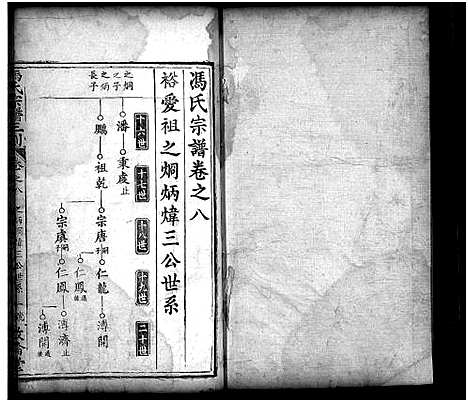 馮氏宗譜卷之八
裕愛祖之炯炳煒三公世系
十六世
十七世
十八世
十九世
二十世
之炯
之子
潘
秉虔
止
之炳
長子
鵬
祖乾
宗唐
仁龍
溥開
仁鳳
宗虞
仁鳳
溥濟
止
溥開
馮氏宗譜
卷之八